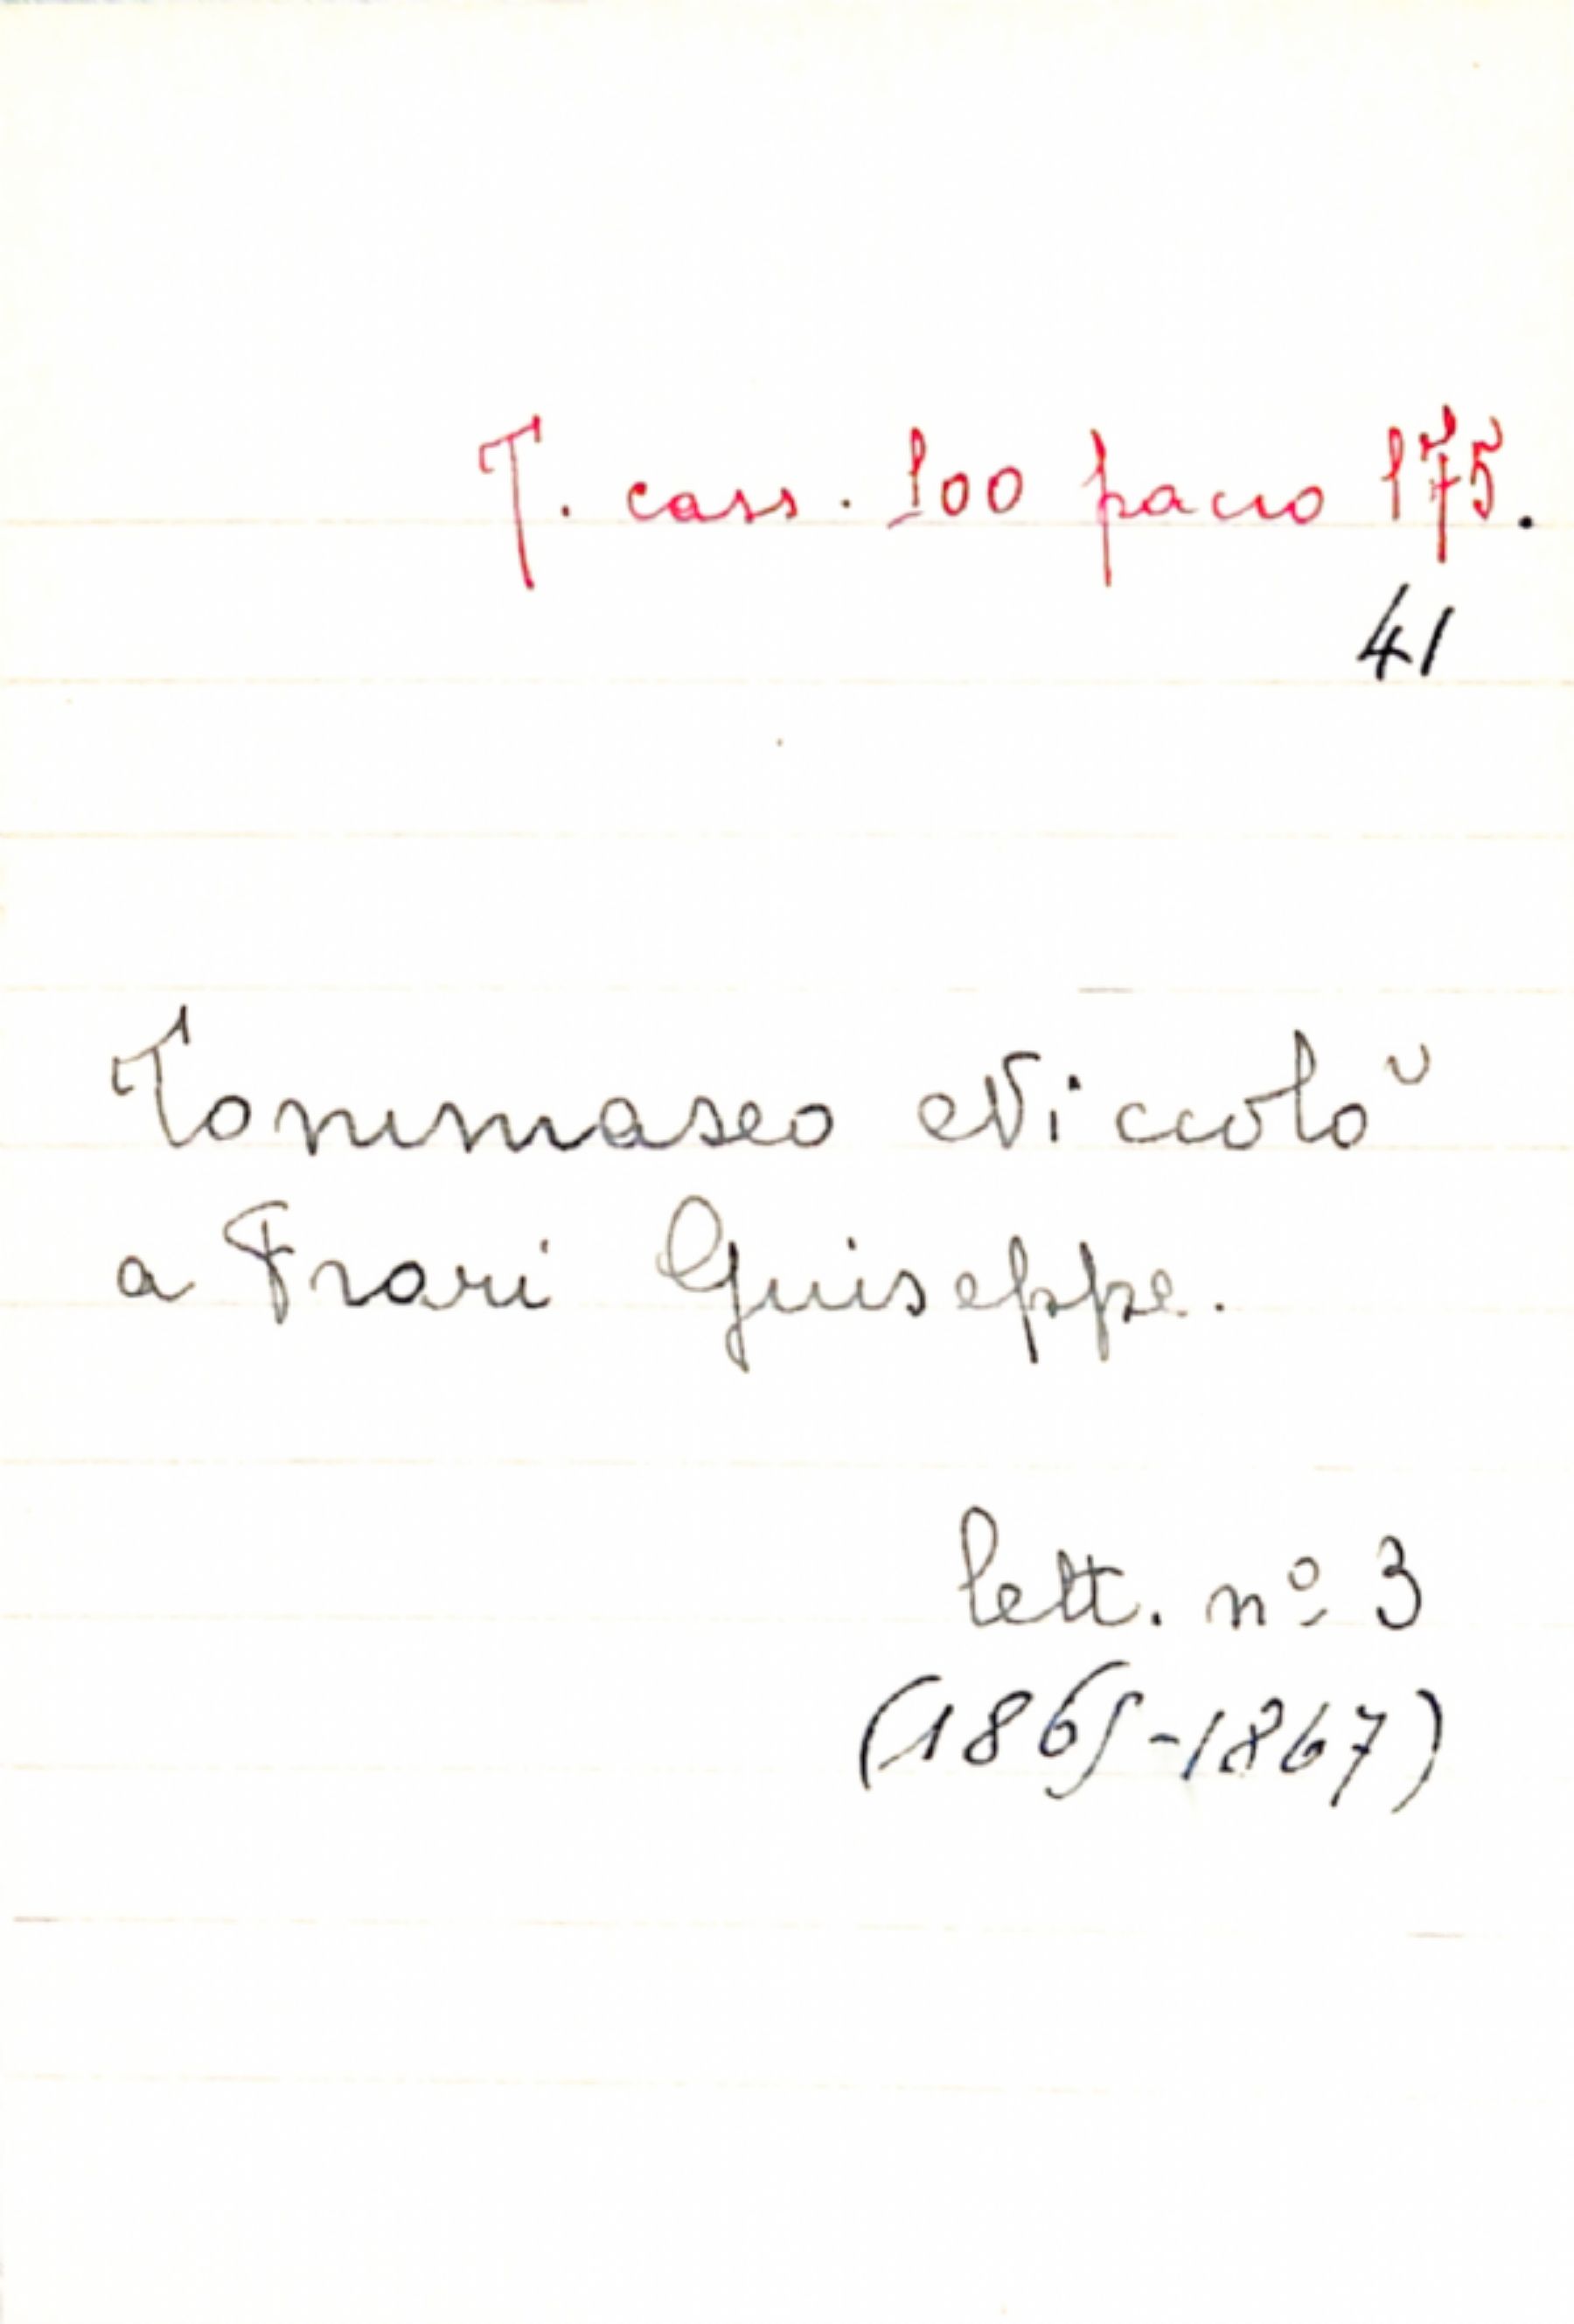 T. cass. 100 pacco 175.
41
Tommaseo Niccolò
a Frari Giuseppe.
lett. nº 3
(1865-1867)